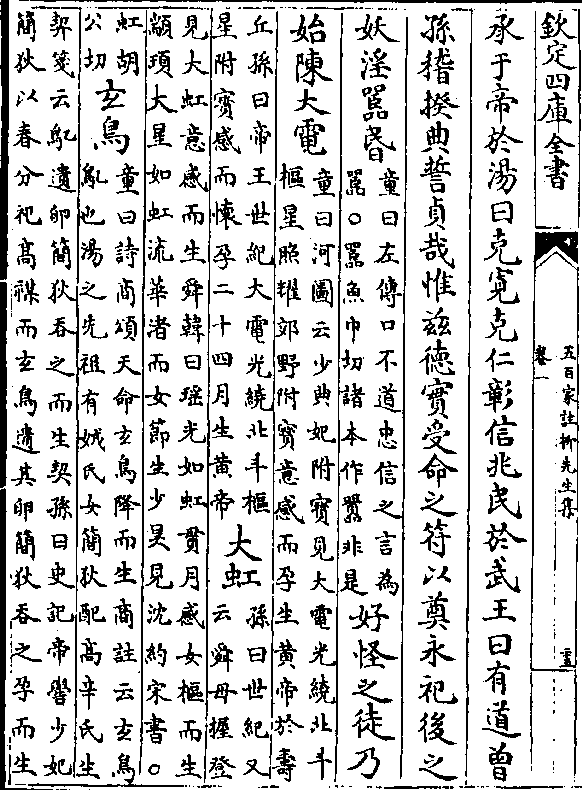 欽定四庫全書
五百家註柳先生集
卷一
承于帝於湯曰克寛克仁彰信兆民於武王曰有道曾
孫稽揆典誓貞哉惟兹德實受命之符以奠永祀後之
妖淫嚚昬
童曰左傳口不道忠信之言為
嚚○嚚魚巾切諸本作囂非是
好怪之徒乃
始陳大電
童曰河圖云少典妃附寳見大電光繞北斗
樞星照耀郊野附寳意感而孕生黄帝於壽
丘孫曰帝王世紀大電光繞北斗樞
星附寳感而懐孕二十四月生黄帝
大虹
孫曰世紀又
云舜母握登
見大虹意感而生舜韓曰瑶光如虹貫月感女樞而生
顓頊大星如虹流華渚而女節生少昊見沈約宋書○
虹胡
公切
玄鳥
童曰詩商頌天命玄鳥降而生商註云玄鳥
鳦也湯之先祖有娀氏女簡狄配髙辛氏生
契箋云鳦遺卵簡狄吞之而生契孫曰史記帝嚳少妃
簡狄以春分祀髙禖而玄鳥遺其卵簡狄吞之孕而生